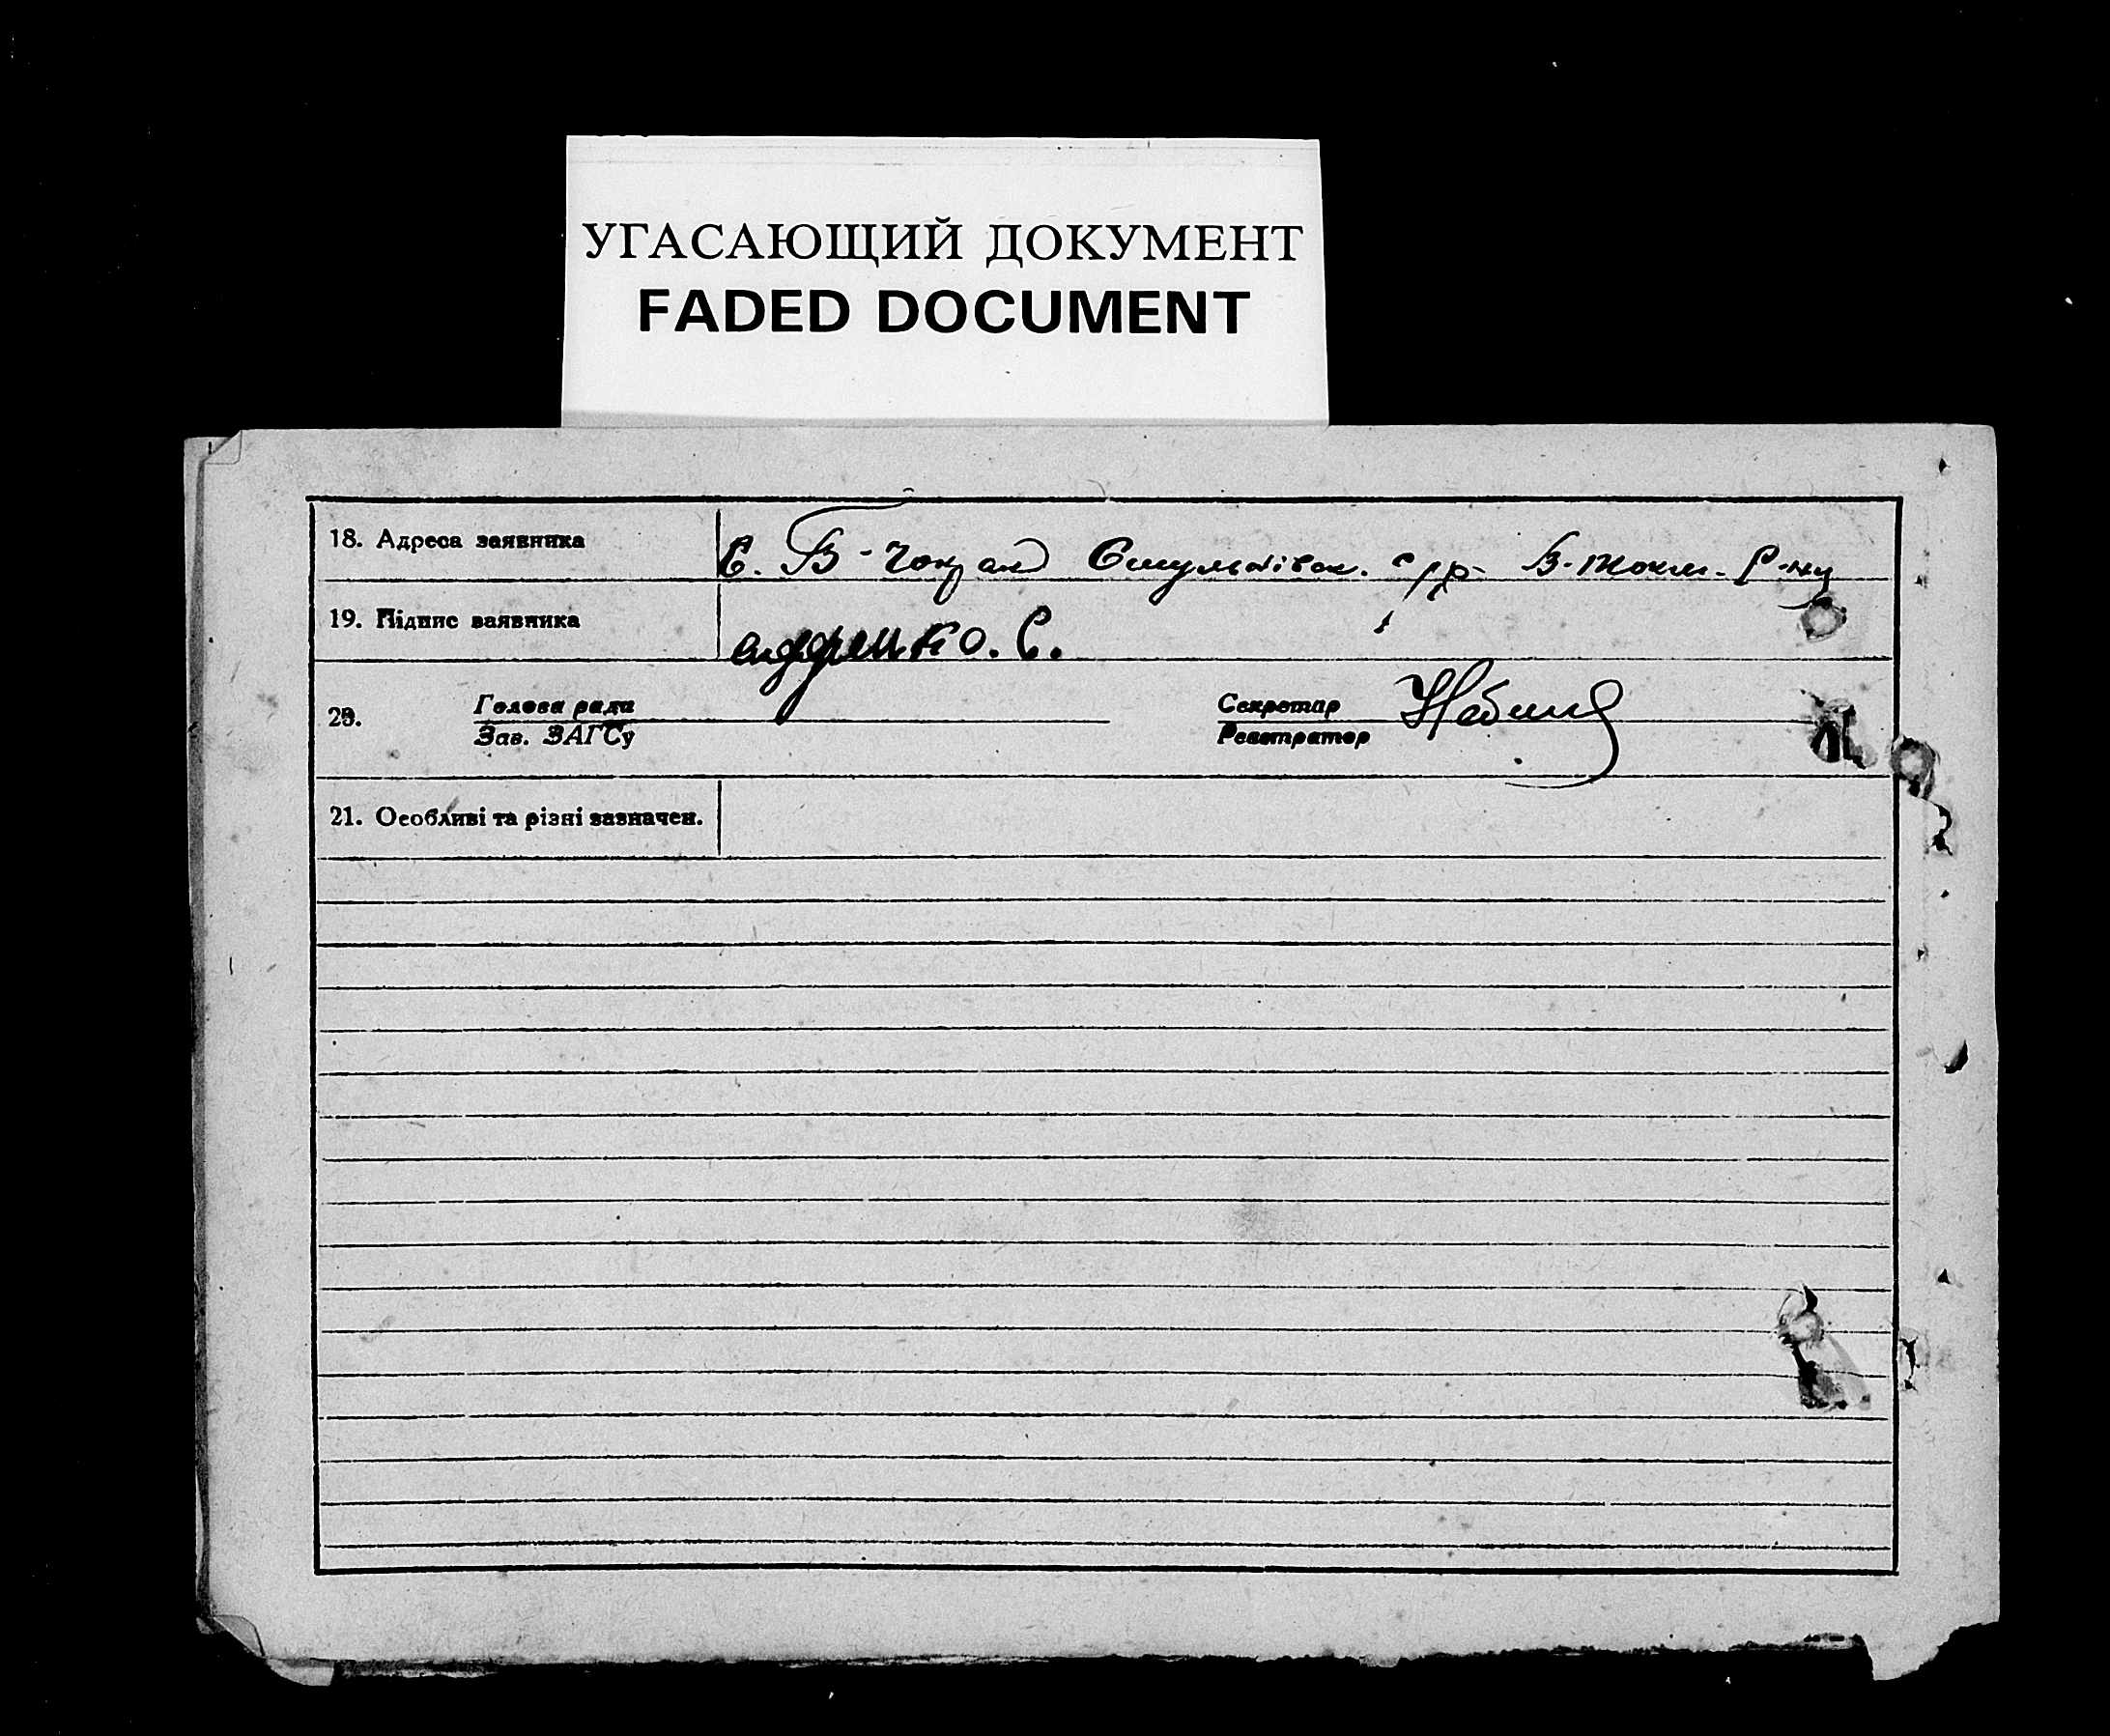 УГАСАЮЩИЙ ДОКУМЕНТ
FADED DOCUMENT
18. Адреса заявника с. В-Чокрак с/р В-Токм. р-ну
19. Підпис заявника
20. Голова ради Секретар
Зав. ЗАГСу Реєстратор
21. Особливі та різні зазначен.